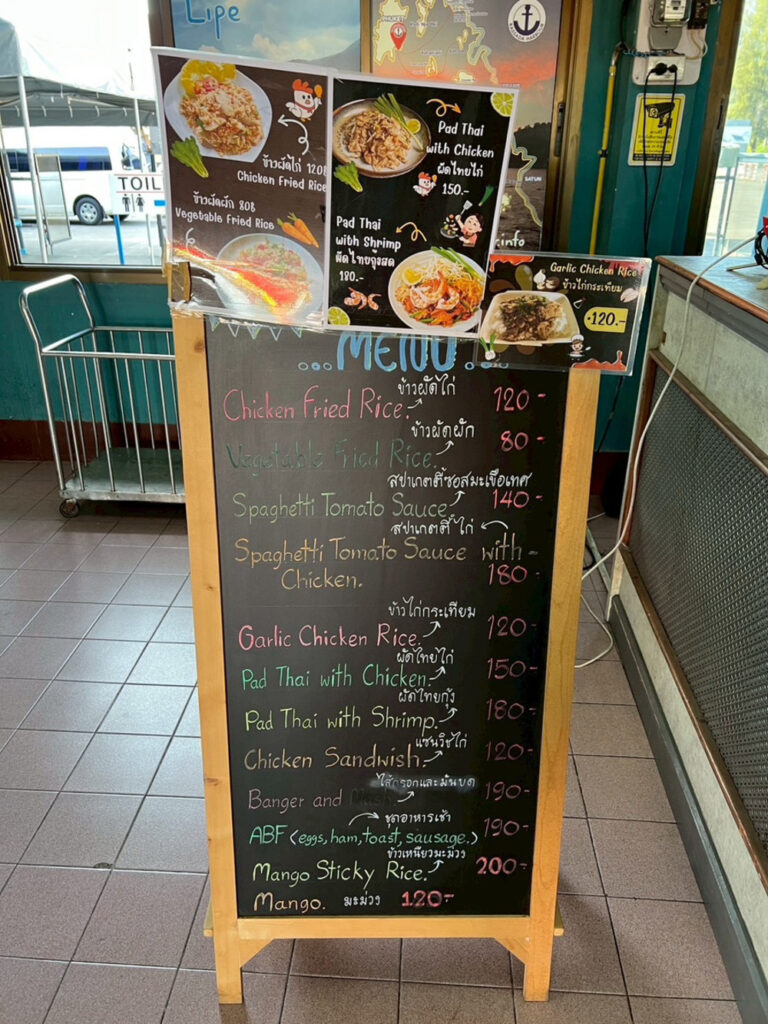 Lipe
PHUKET
SATUN
info
TOIL
ข้าวผัดไก่ 120฿
Chicken Fried Rice
ข้าวผัดผัก 80฿
Vegetable Fried Rice
Pad Thai
with Chicken
ผัดไทยไก่
150.-
Pad Thai
with Shrimp
ผัดไทยกุ้งสด
180.-
Garlic Chicken Rice
ข้าวไก่กระเทียม
120.-
...MENU...
ข้าวผัดไก่
Chicken Fried Rice. 120-
ข้าวผัดผัก
Vegetable Fried Rice. 80-
สปาเกตตี้ซอสมะเขือเทศ
Spaghetti Tomato Sauce 140-
สปาเกตตี้ ไก่
Spaghetti Tomato Sauce with-
Chicken. 180-
ข้าวไก่กระเทียม
Garlic Chicken Rice. 120-
ผัดไทยไก่
Pad Thai with Chicken. 150-
ผัดไทยกุ้ง
Pad Thai with Shrimp. 180-
แซนวิชไก่
Chicken Sandwish. 120-
ไส้กรอกและมันบด
Banger and 190-
ชุดอาหารเช้า
ABF (eggs, ham, toast, sausage.) 190-
ข้าวเหนียวมะม่วง
Mango Sticky Rice. 200-
Mango. มะม่วง 120-